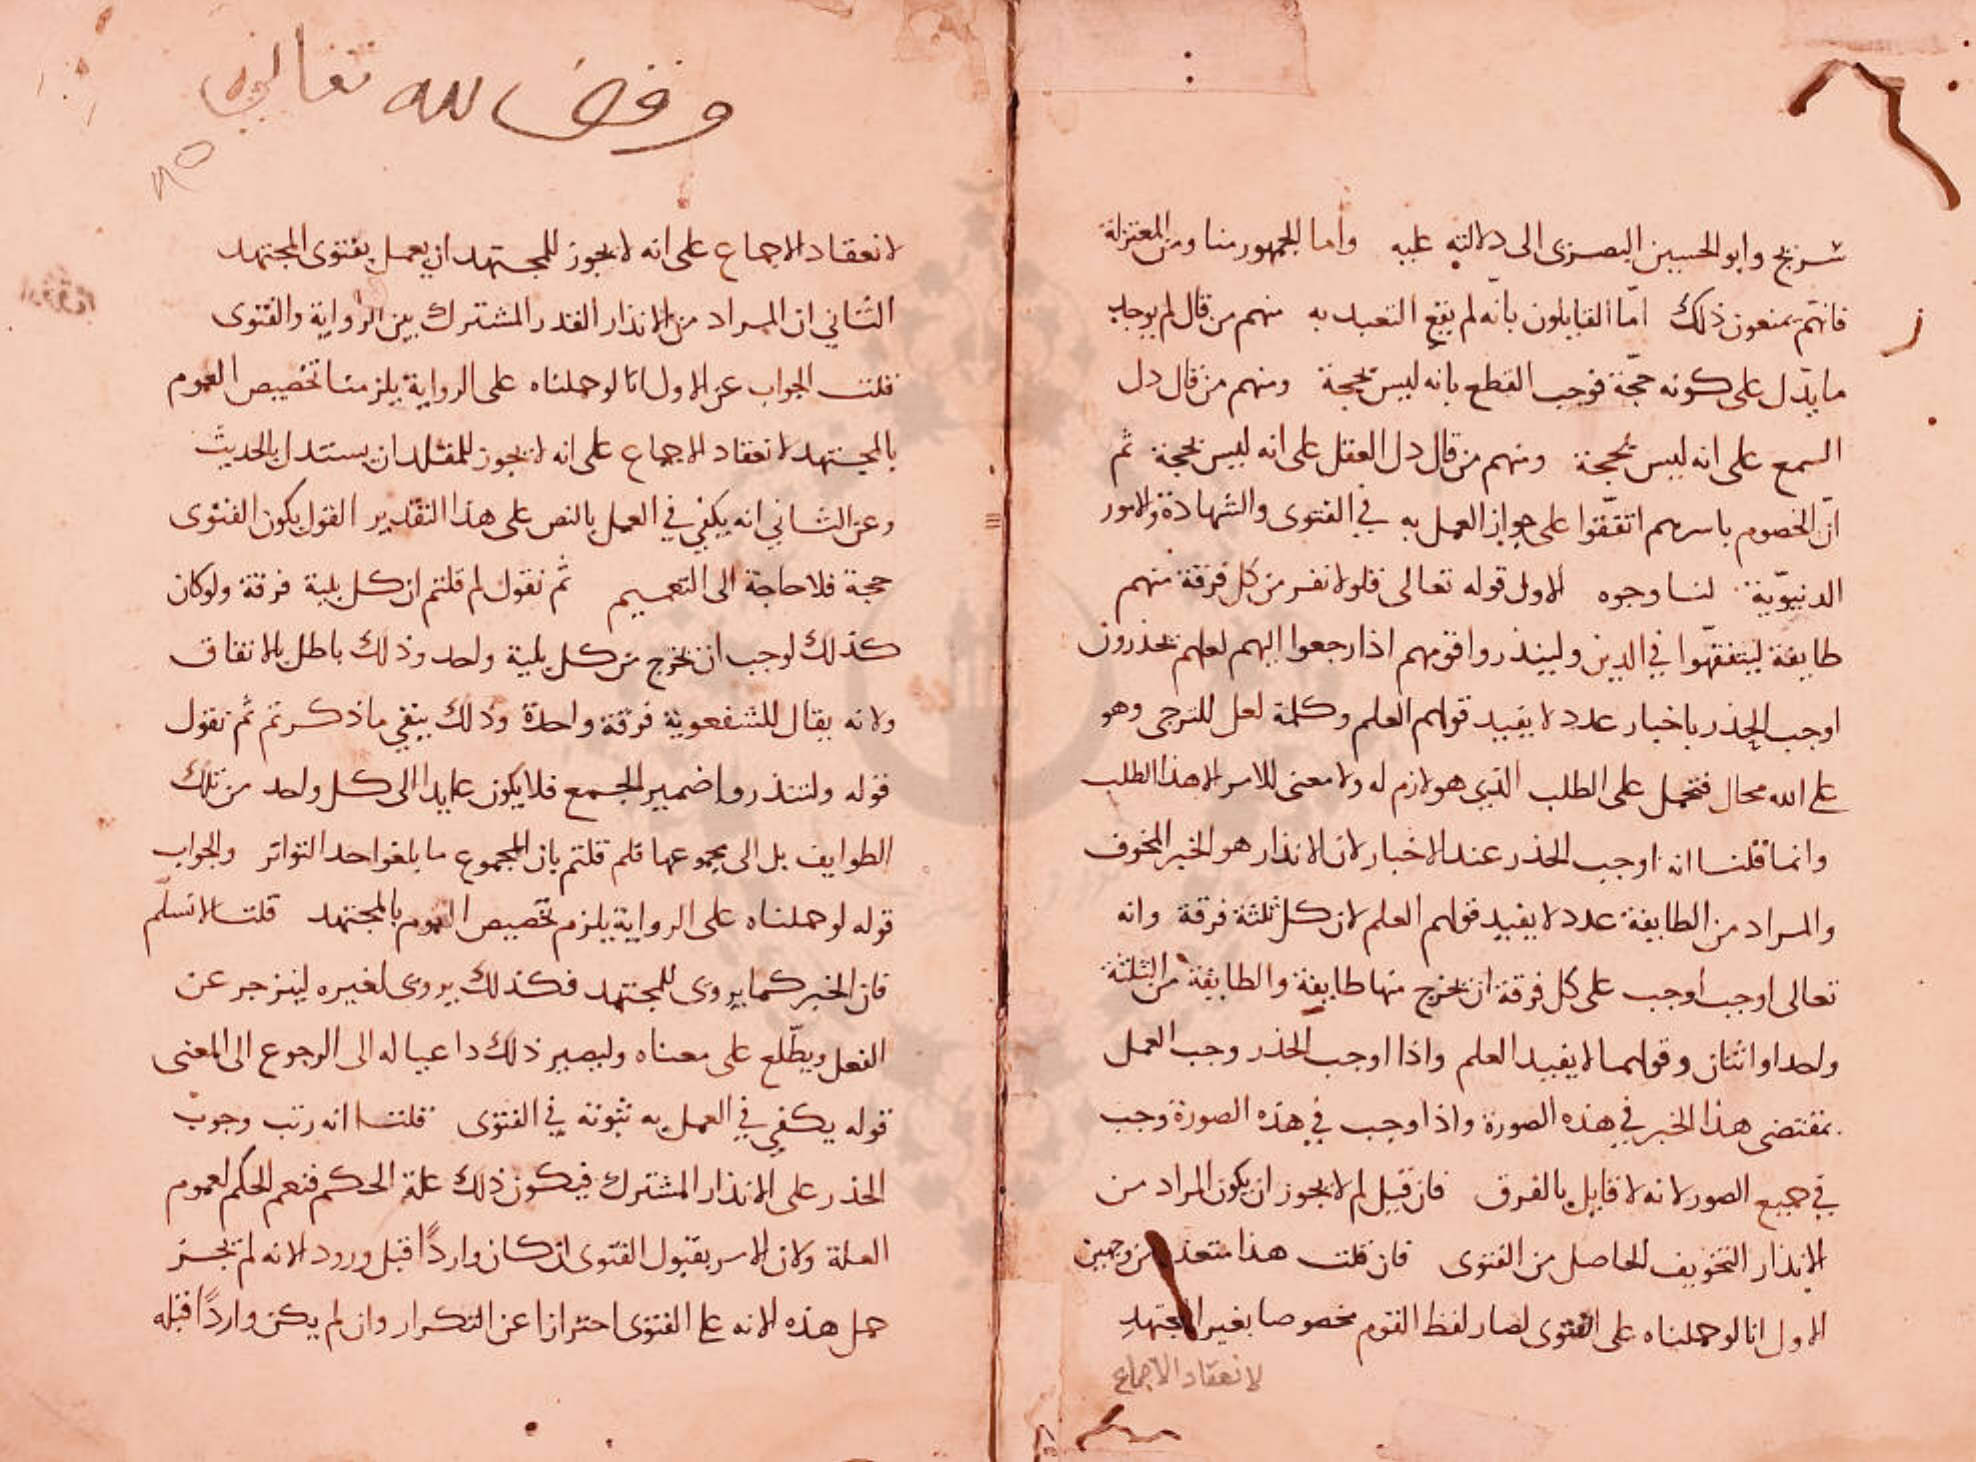 شريح وابو الحسين البصرى الى دلالته عليه واما الجمهور منا ومن المعتزلة
فانهم يمنعون ذلك امّا القايلون بانه لم يقع التعبد به منهم من قال لم يوجد
ما يدّل على كونه حجّة فوجب القطع بانه ليس بحجة ومنهم من قال دل
السمع على انه ليس بحجة ومنهم من قال دل العقل على انه ليس بحجة ثم
انّ الخصوم باسرهم اتفقّوا على جواز العمل به في الفتوى والشهادة والامور
الدنيوّية لنا وجوه الاول قوله تعالى فلولا نفر من كل فرقة منهم
طايفة ليتفقهّوا في الدين ولينذروا قومهم اذا رجعوا اليهم لعلهم يحذرون
اوجب الحذر باخبار عدد لا يفيد قولهم العلم وكلمة لعل للترجى وهو
على الله محال فتحمل على الطلب الذي هو لازم له ولا معنى للامر الا هذا الطلب
وانما قلنا انه اوجب الحذر عند الاخبار لان الانذار هو الخبر المخوف
والمراد من الطايفة عدد لا يفيد قولهم العلم لان كل ثلثة فرقة وانه
تعالى اوجب اوجب على كل فرقة ان يخرج منها طايفة والطايفة من الثلثة
واحد او اثنان وقولهما لا يفيد العلم واذا اوجب الحذر وجب العمل
بمقتضى هذا الخبر في هذه الصورة واذا وجب في هذه الصورة وجب
في جميع الصور لانه لا قايل بالفرق فان قيل لم لا يجوز ان يكون المراد من
الانذار التخويف الحاصل من الفتوى فان قلت هذا متعذر من وجهين
الاول انا لو حملناه على الفتوى لصار لفظ القوم مخصوصا بغير المجتهد
لانعقاد الاجماع
وقف لله تعالى
لانعقاد الاجماع على انه لا يجوز للمجتهد ان يعمل بفتوى المجتهد
الثاني ان المراد من الانذار القدر المشترك بين الرواية والفتوى
قلت الجواب عن الاول انا لو حملناه على الرواية يلزمنا تخصيص العموم
بالمجتهد لانعقاد الاجماع على انه لا يجوز للمقلد ان يستدل بالحديث
وعن الثاني انه يكفي في العمل بالنص على هذا التقدير القول بكون الفتوى
حجة فلا حاجة الى التعميم ثم نقول لم قلتم ان كل ثلثة فرقة ولو كان
كذلك لوجب ان يخرج من كل ثلثة واحد وذلك باطل بالاتفاق
ولانه يقال للشفعوية فرقة واحدة وذلك ينفي ما ذكرتم ثم نقول
قوله ولينذروا ضمير الجمع فلا يكون عايدا الى كل واحد من تلك
الطوايف بل الى مجموعها فلم قلتم بان المجموع ما بلغوا حد التواتر والجواب
قوله لو حملناه على الرواية يلزم تخصيص العموم بالمجتهد قلنا لا نسلّم
فان الخبر كما يروى للمجتهد فكذلك يروى لغيره لينزجر عن
الفعل ويطّلع على معناه وليصير ذلك داعيا له الى الرجوع الى المفتى
قوله يكفي في العمل به ثبوته في الفتوى قلنا انه رتب وجوب
الحذر على الانذار المشترك فيكون ذلك علة الحكم فتعم الحكم لعموم
العلة ولان الامر بقبول الفتوى ان كان وارداً قبل ورود الانه لم يجز
حمل هذه الانه على الفتوى احترازا عن التكرار وان لم يكن وارداً قبله